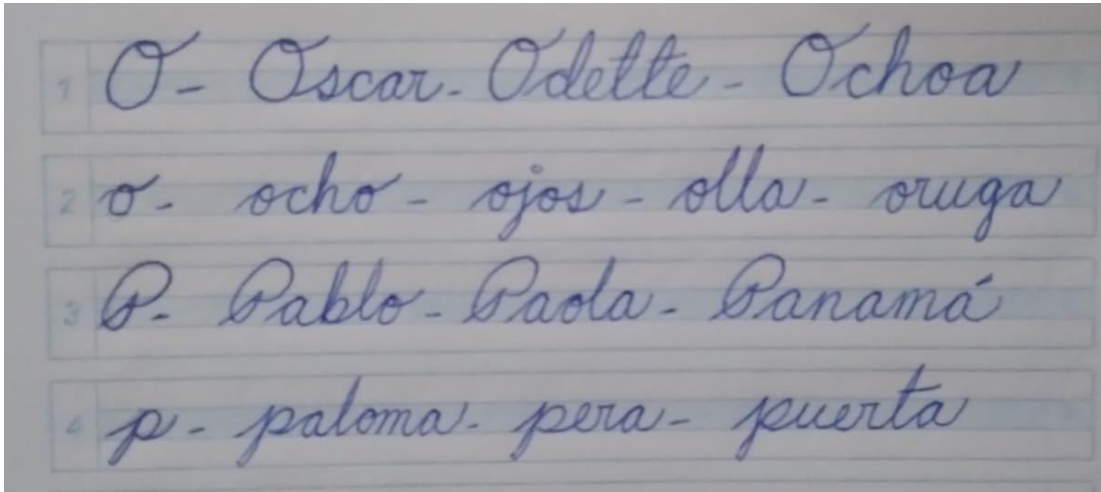 1 O - Oscar - Odette - Ochoa
2 o - ocho - ojos - olla - oruga
3 P - Pablo - Paola - Panamá
4 p - paloma - pera - puerta